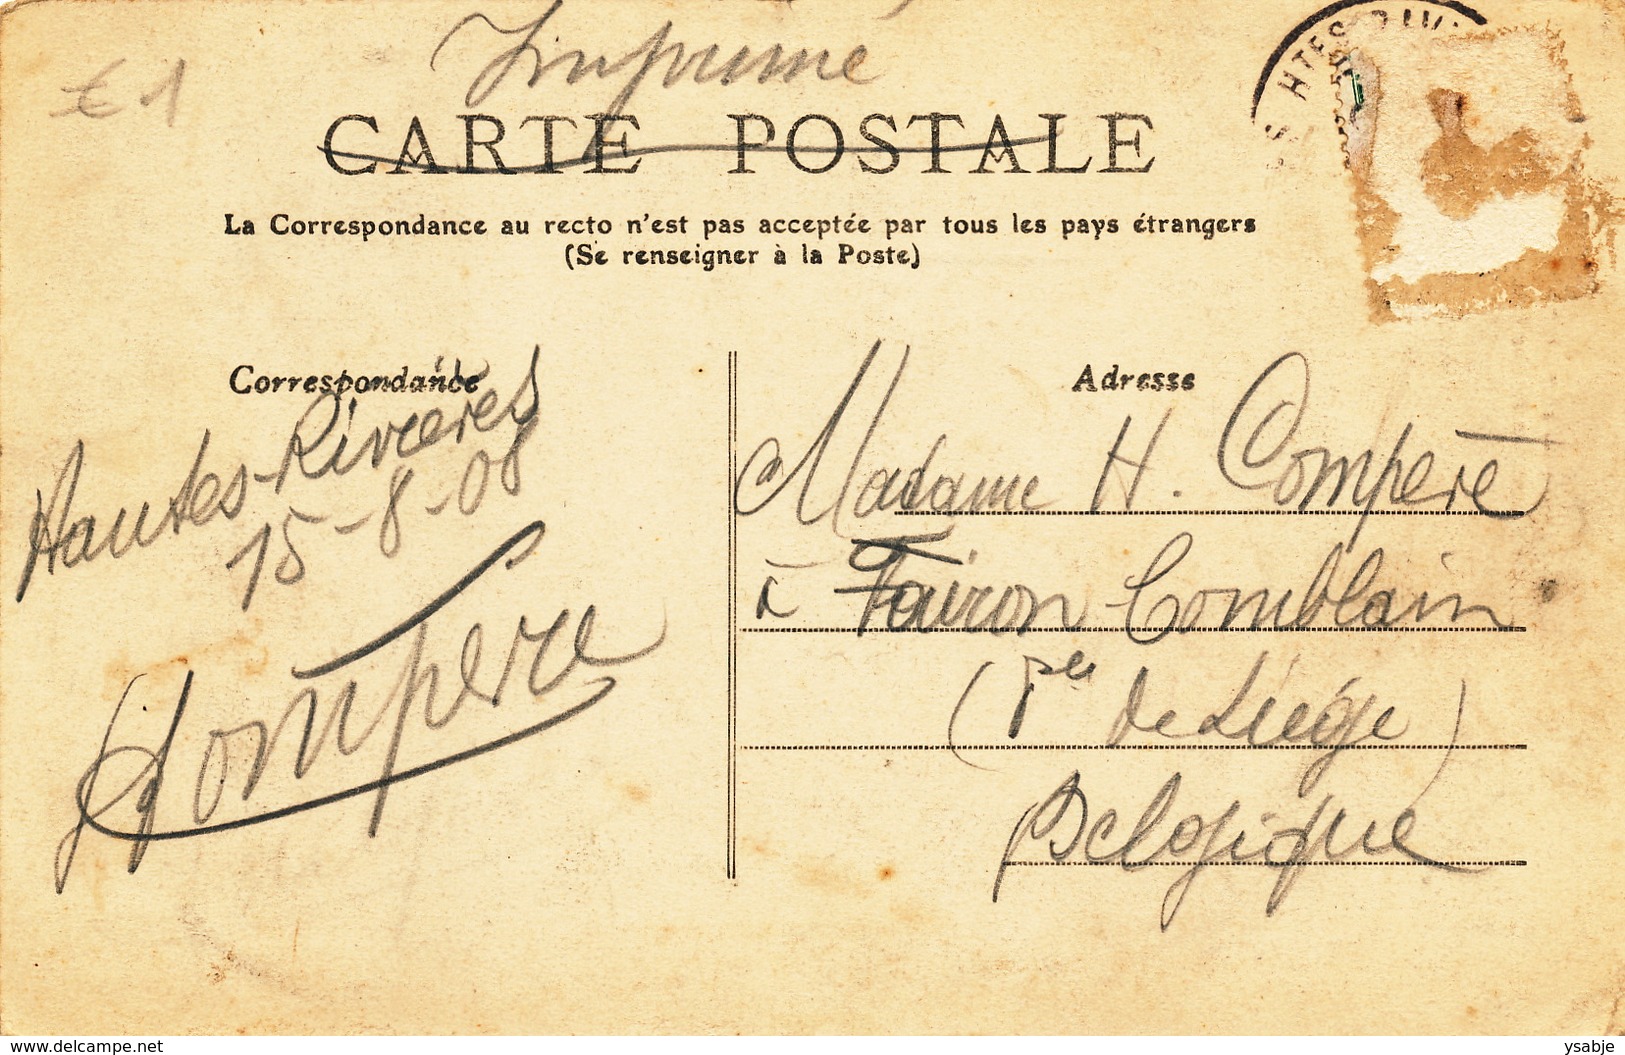 Imprimé
€ 1
HTES
CARTE POSTALE
La Correspondance au recto n'est pas acceptée par tous les pays étrangers
(Se renseigner à la Poste)
Correspondance
Hautes-Rivières
15-8-08
Compère
Adresse
Madame H. Compère
à Fairon Comblain
(Pce de Liége)
Belgique
www.delcampe.net
ysabje